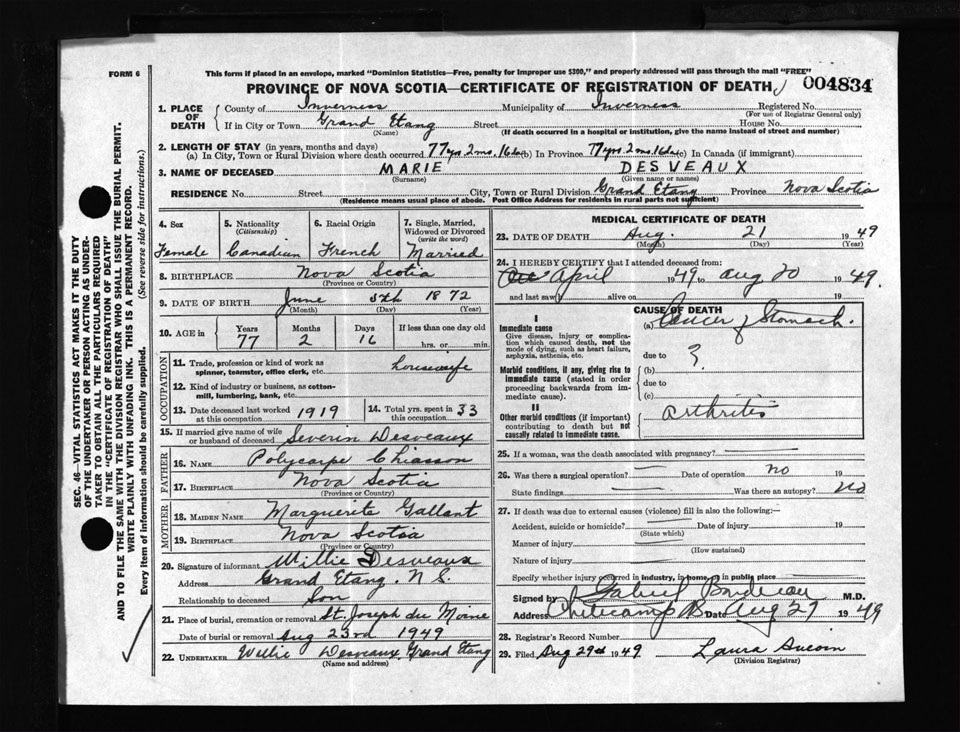 FORM 6
This form if placed in an envelope, marked "Dominion Statistics—Free, penalty for improper use $300," and properly addressed will pass through the mail "FREE"
PROVINCE OF NOVA SCOTIA—CERTIFICATE OF REGISTRATION OF DEATH 004834
1. PLACE OF DEATH County of Inverness Municipality of Inverness Registered No.
(For use of Registrar General only)
If in City or Town Grand Etang Street House No.
(Name) (If death occurred in a hospital or institution, give the name instead of street and number)
2. LENGTH OF STAY (in years, months and days)
(a) In City, Town or Rural Division where death occurred 77 yrs 2 mo. 16 da (b) In Province 77 yrs. 2 mo. 16 da (c) In Canada (if immigrant)
3. NAME OF DECEASED MARIE DESVEAUX
(Surname) (Given name or names)
RESIDENCE No. Street City, Town or Rural Division Grand Etang Province Nova Scotia
(Residence means usual place of abode. Post Office Address for residents in rural parts not sufficient)
4. Sex 5. Nationality (Citizenship) 6. Racial Origin 7. Single, Married, Widowed or Divorced (write the word)
Female Canadian French Married
8. BIRTHPLACE Nova Scotia
(Province or Country)
9. DATE OF BIRTH June 5th 1872
(Month) (Day) (Year)
10. AGE in Years Months Days If less than one day old
77 2 16 hrs. or min.
OCCUPATION
11. Trade, profession or kind of work as spinner, teamster, office clerk, etc. housewife
12. Kind of industry or business, as cotton-mill, lumbering, bank, etc.
13. Date deceased last worked at this occupation 1919 14. Total yrs. spent in this occupation 33
15. If married give name of wife or husband of deceased Severin Desveaux
FATHER
16. NAME Polycarpe Chiasson
17. BIRTHPLACE Nova Scotia
(Province or Country)
MOTHER
18. MAIDEN NAME Marguerite Gallant
19. BIRTHPLACE Nova Scotia
(Province or Country)
20. Signature of informant Willie Desveaux
Address Grand Etang. N.S.
Relationship to deceased Son
21. Place of burial, cremation or removal St. Joseph du Moine
Date of burial or removal Aug 23rd 1949
22. UNDERTAKER Willie Desveaux, Grand Etang
(Name and address)
MEDICAL CERTIFICATE OF DEATH
23. DATE OF DEATH Aug. 21 1949
(Month) (Day) (Year)
24. I HEREBY CERTIFY that I attended deceased from:
April 1949 to Aug 20 1949.
and last saw alive on 19
CAUSE OF DEATH
I
Immediate cause (a) Cancer of Stomach.
Give disease, injury or complication which caused death, not the mode of dying, such as heart failure, asphyxia, asthenia, etc.
due to ?
Morbid conditions, if any, giving rise to immediate cause (stated in order proceeding backwards from immediate cause).
(b)
due to
(c)
II
Other morbid conditions (if important) contributing to death but not causally related to immediate cause.
Arthritis
25. If a woman, was the death associated with pregnancy?
26. Was there a surgical operation? Date of operation no 19
State findings Was there an autopsy? No
27. If death was due to external causes (violence) fill in also the following:—
Accident, suicide or homicide? Date of injury 19
(State which)
Manner of injury
(How sustained)
Nature of injury
Specify whether injury occurred in industry, in home, or in public place
Signed by M.D.
Address Cheticamp Date Aug 27 1949
28. Registrar's Record Number
29. Filed Aug 29th 1949 Laura Aucoin
(Division Registrar)
SEC. 46—VITAL STATISTICS ACT MAKES IT THE DUTY
OF THE UNDERTAKER OR PERSON ACTING AS UNDER-
TAKER TO OBTAIN ALL THE PARTICULARS REQUIRED
IN THE "CERTIFICATE OF REGISTRATION OF DEATH"
AND TO FILE THE SAME WITH THE DIVISION REGISTRAR WHO SHALL ISSUE THE BURIAL PERMIT.
WRITE PLAINLY WITH UNFADING INK. THIS IS A PERMANENT RECORD.
Every item of information should be carefully supplied. (See reverse side for instructions.)